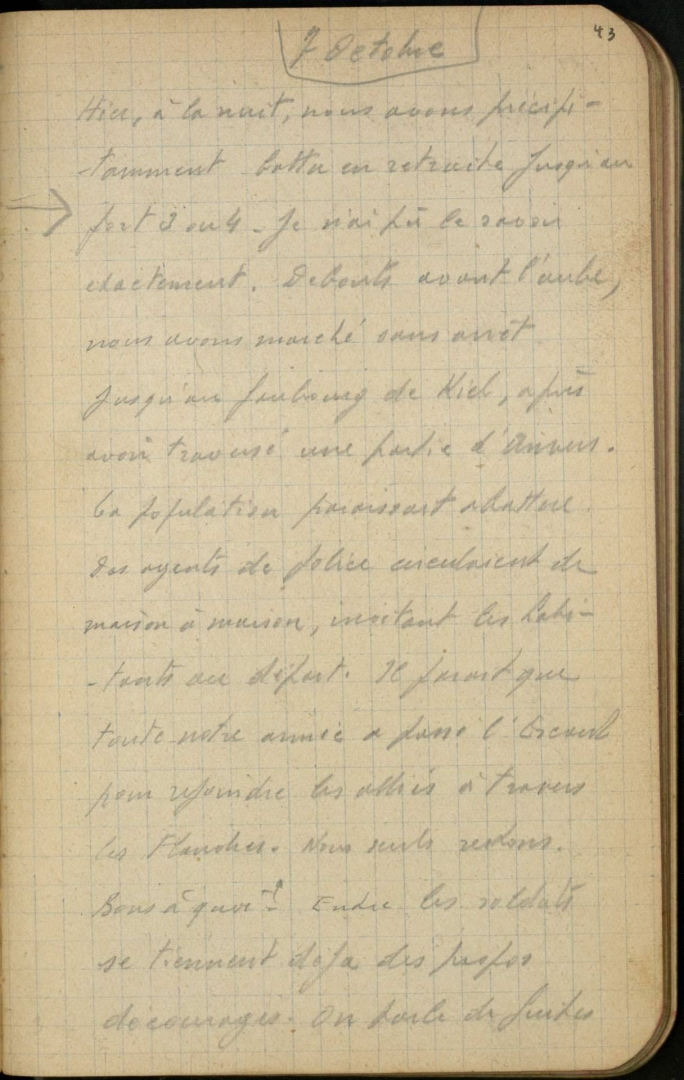 43
7 Octobre
Hier, à la nuit, nous avons précipi-
-tamment battu en retraite jusqu'au
fort 3 ou 4 - Je n'ai pû le savoir
exactement. Debouts avant l'aube,
nous avons marché sans arrêt
jusqu'au faubourg de Kiel, après
avoir traversé une partie d'Anvers.
La population paraissait abattue.
Des agents de police circulaient de
maison à maison, invitant les habi-
-tants au départ. Il parait que
toute notre armée a passé l'Escaut
pour rejoindre les alliés à travers
les Flandres. Nous seuls restons.
Bons à quoi? Entre les soldats
se tiennent déjà des propos
découragés. On parle de fuites